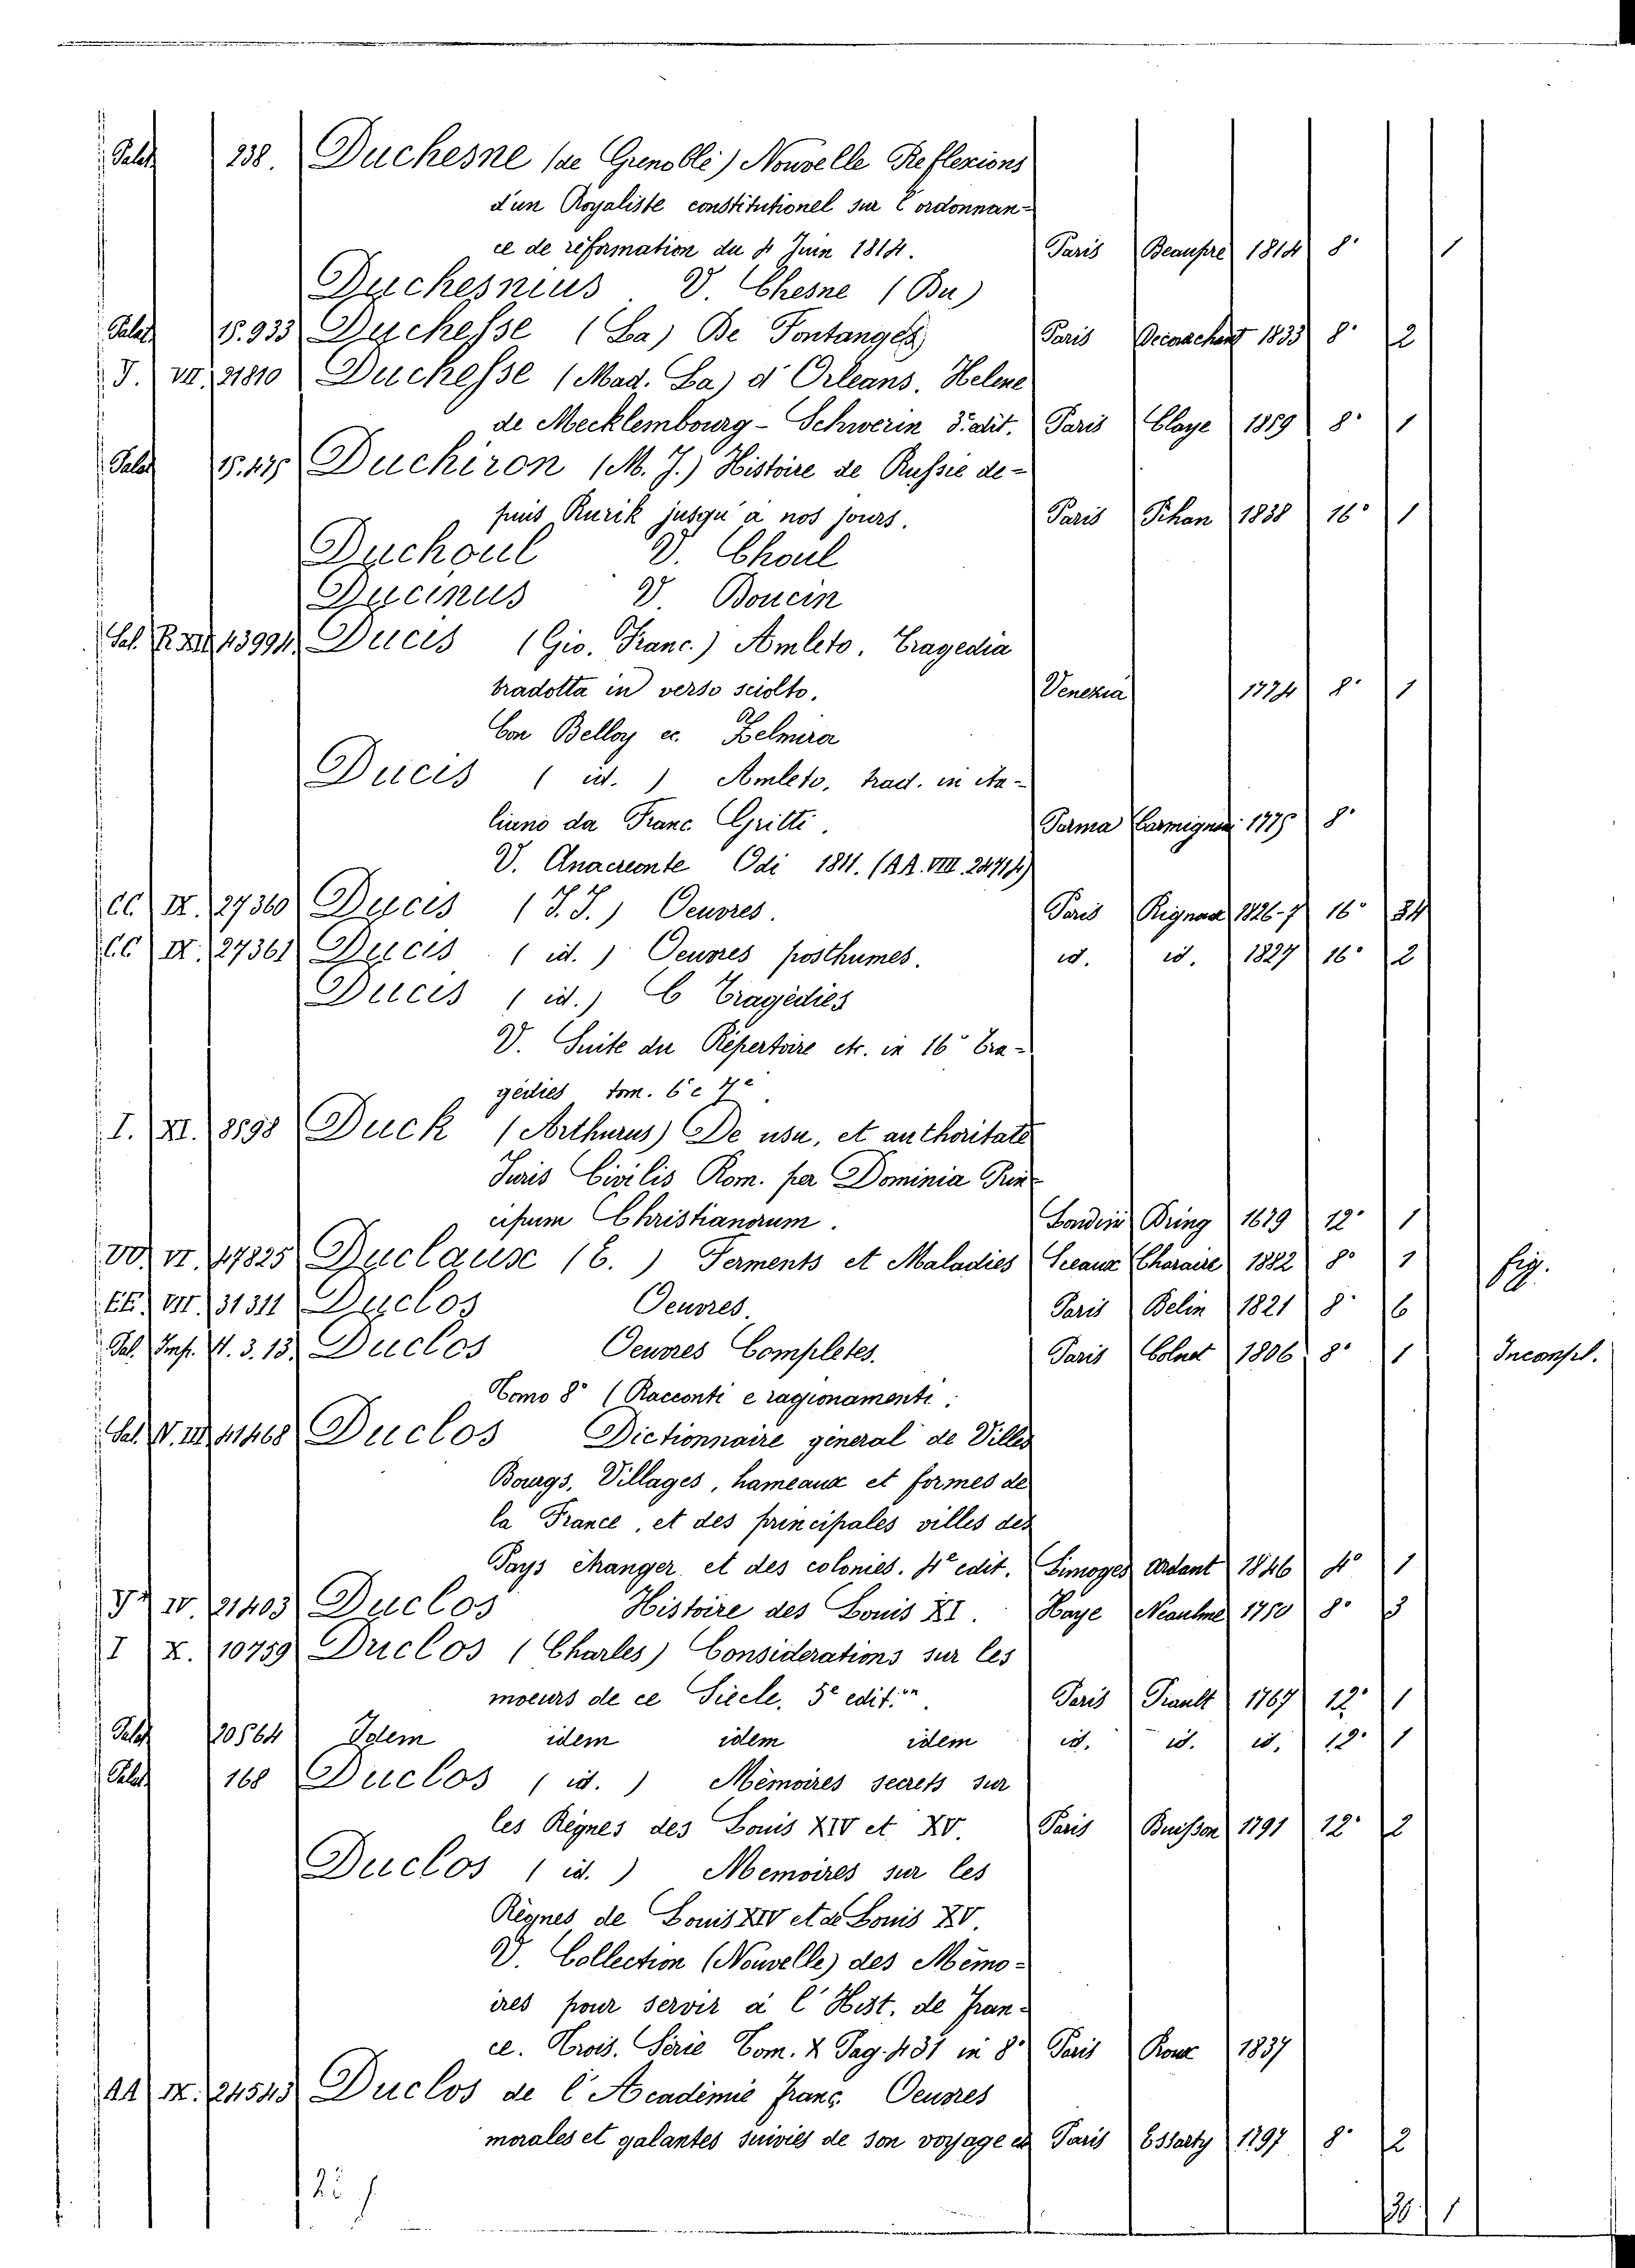 Palat 238. Duchesne (de Grenoble) Nouvelle Reflexions
d'un Royaliste constitutionel sur l'ordonnan-
ce de réformation du 4 Juin 1814. Paris Beaupre 1814 8° 1
Duchesnius V. Chesne (Du)
Palat 15.933 Duchesse (La) De Fontanges Paris 1833 8° 2
J. VII. 21810 Duchesse (Mad. La) d'Orleans. Helene
de Mecklembourg-Schwerin 3.e edit. Paris Claye 1859 8° 1
Palat Duchiron (M. J.) Histoire de Russie de-
puis Rurik jusqu'a nos jours. Paris Pihan 1838 16° 1
Duchoul V. Choul
Ducinus V. Boucin
Sal. R. XII 43994 Ducis (Gio. Franc.) Amleto, Tragedia
tradotta in verso sciolto. Venezia 1774 8° 1
Con Belloy ec. Zelmira
Ducis (id.) Amleto, trad. in Ita-
liano da Franc. Gritti. Parma Carmignani 8°
V. Anacreonte Odi 1811. (AA. VIII. 24714)
CC IX. 27360 Ducis (J. J.) Oeuvres. Paris Rignoux 1826-7 16°
CC IX. 27361 Ducis (id.) Oeuvres posthumes. id. id. 1827 16° 2
Ducis (id.) 6 Tragédies
V. Suite du Répertoire etc. in 16° Tra-
gédies tom. 6 e 7e.
I. XI. 8598 Duck (Arthurus) De usu, et authoritate
Juris Civilis Rom. per Dominia Prin-
cipum Christianorum. Londini Dring 1679 12° 1
VV. VI. 47825 Duclause (E.) Ferments et Maladies Sceaux Charaire 1882 8° 1 fig.
EE. VII. 31311 Duclos Oeuvres. Paris Belin 1821 8° 6
Sal. Imp. V. 3. 13. Duclos Oeuvres Completes. Paris Colnet 1806 8° 1 Incompl.
Tomo 8° (Racconti e ragionamenti.
Sal. V. III 41468 Duclos Dictionnaire general de Villes
Bourgs, Villages, hameaux et formes de
la France, et des principales villes des
Pays étranger et des colonies. 4e edit. Limoges Ardant 1846 4° 1
IV. 21403 Duclos Histoire des Louis XI. Haye Neaulme 1750 8° 3
I X. 10759 Duclos (Charles) Considerations sur les
moeurs de ce Siecle. 5e edit.on Paris Prault 1767 12° 1
Palat 20564 Idem idem idem idem id. id. id. 12° 1
Palat 168 Duclos (id.) Mémoires secrets sur
les Régnes des Louis XIV et XV. Paris Buisson 1791 12° 2
Duclos (id.) Memoires sur les
Régnes de Louis XIV et de Louis XV.
V. Collection (Nouvelle) des Mémo-
ires pour servir à l'Hist. de Fran-
ce. Trois. Série Tom. X Pag. 431 in 8° Paris Roux 1837
AA IX. 24545 Duclos de l'Academie franç. Oeuvres
morales et galantes suivies de son voyage en Paris Essarty 1797 8° 2